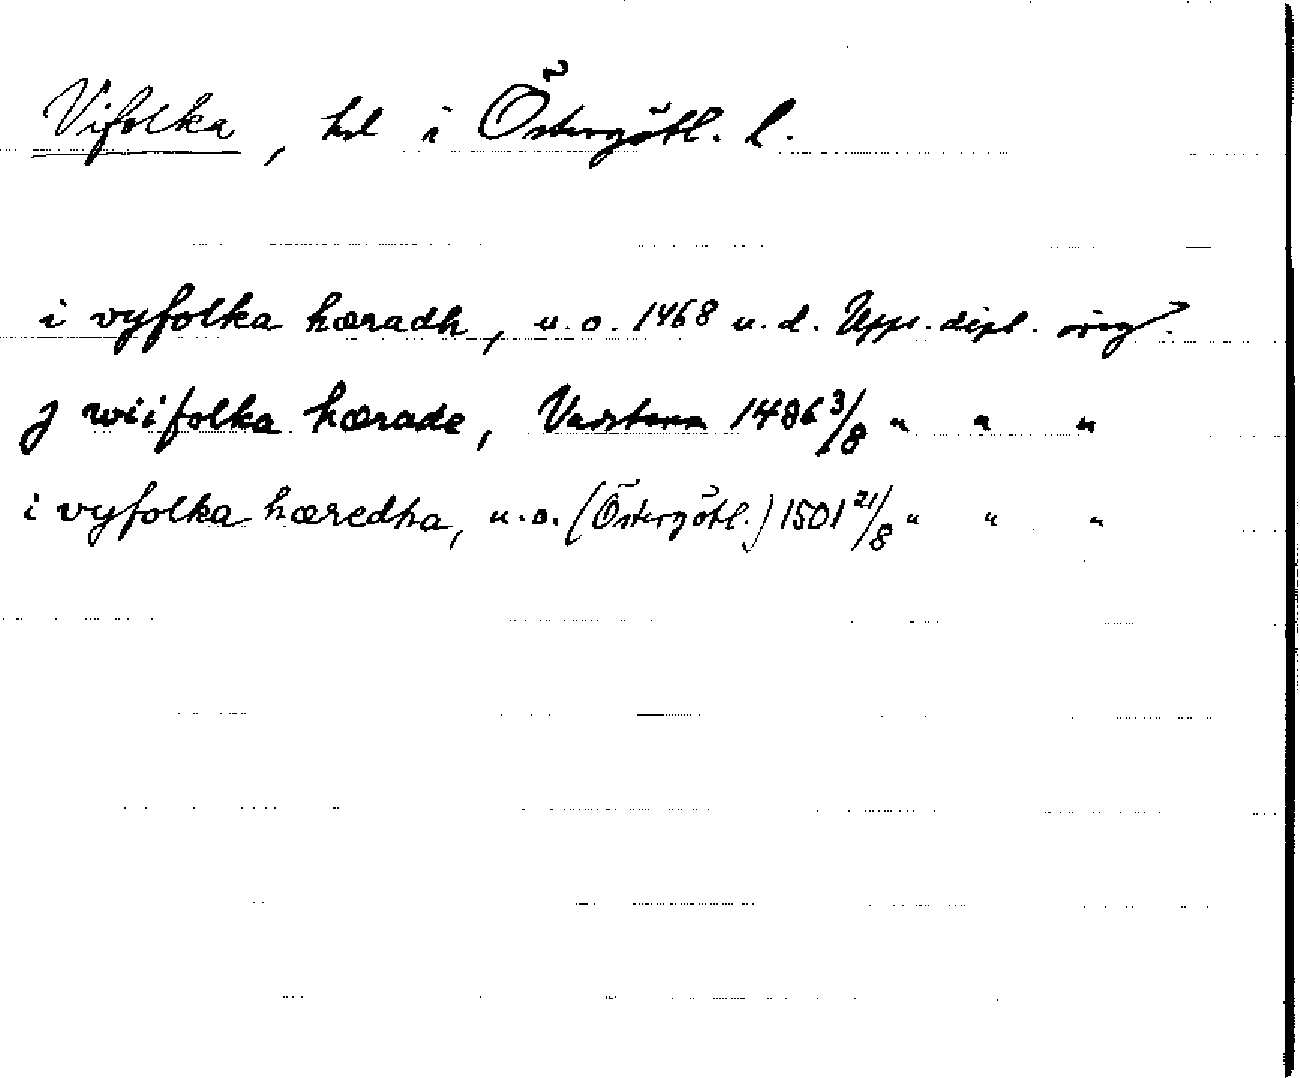 Vifolka, hd i Östergötl. l.
i vyfolka hæradh, u. o. 1468 u. d. Upps. dipl. orig.
J wiifolka hærade, Vadstena 1486 3/8 " " "
i vyfolka hæredha, u. o. (Östergötl.) 1501 21/8 " " "